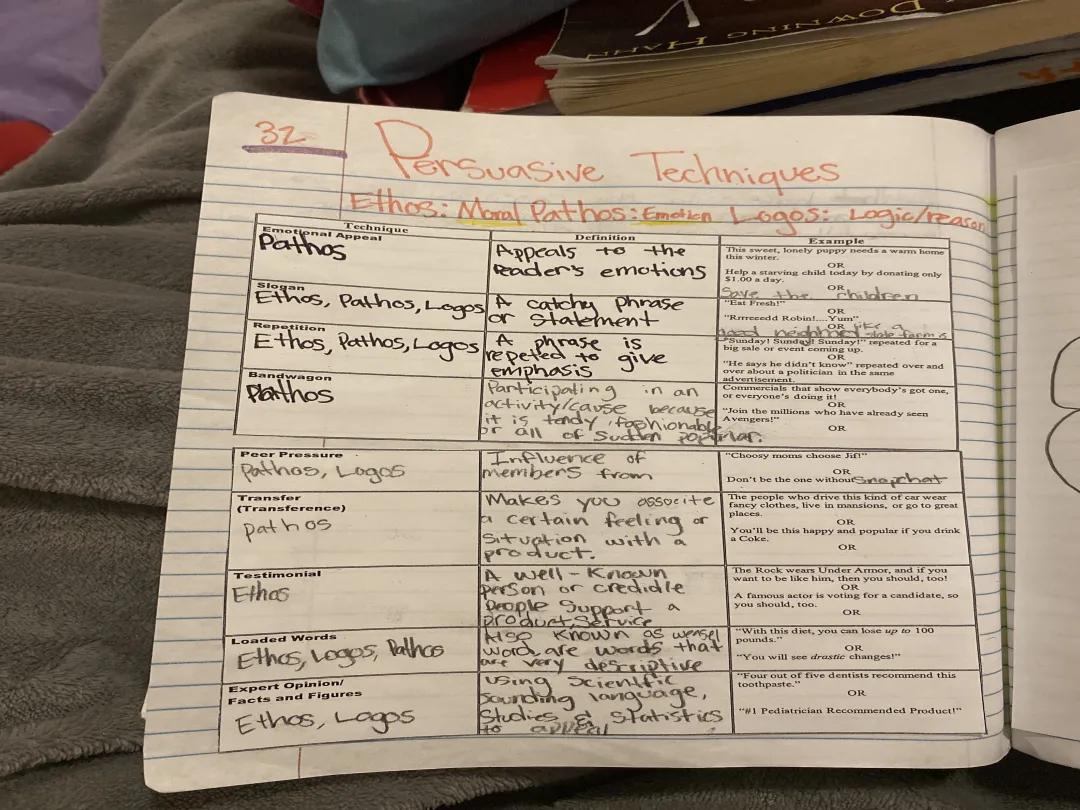 DOWNING HAHN
32
Persuasive Techniques
Ethos: Moral Pathos: Emotion Logos: Logic/reason
Technique
Definition
Example
Emotional Appeal
Pathos
Appeals to the
reader's emotions
This sweet, lonely puppy needs a warm home
this winter.
OR
Help a starving child today by donating only
$1.00 a day.
OR
Save the children
Slogan
Ethos, Pathos, Logos
A catchy phrase
or Statement
"Eat Fresh!"
OR
"Rrrreeedd Robin!....Yum"
OR like a
good neighbor state farm is
Repetition
Ethos, Pathos, Logos
A phrase is
repeted to give
emphasis
"Sunday! Sunday! Sunday!" repeated for a
big sale or event coming up.
OR
"He says he didn't know" repeated over and
over about a politician in the same
advertisement.
Bandwagon
Pathos
Participating in an
activity/cause because
it is tendy, fashionable
or all of Sudden popular.
Commercials that show everybody's got one,
or everyone's doing it!
OR
"Join the millions who have already seen
Avengers!"
OR
Peer Pressure
Pathos, Logos
Influence of
members from
"Choosy moms choose Jif!"
OR
Don't be the one without Snapchat
Transfer
(Transference)
pathos
Makes you associte
a certain feeling or
Situation with a
product.
The people who drive this kind of car wear
fancy clothes, live in mansions, or go to great
places.
OR
You'll be this happy and popular if you drink
a Coke.
OR
Testimonial
Ethos
A well-Known
person or credidle
people Support a
product, Service
The Rock wears Under Armor, and if you
want to be like him, then you should, too!
OR
A famous actor is voting for a candidate, so
you should, too.
OR
Loaded Words
Ethos, Logos, Pathos
Also known as weasel
word, are words that
are very descriptive
"With this diet, you can lose up to 100
pounds."
OR
"You will see drastic changes!"
Expert Opinion/
Facts and Figures
Ethos, Logos
Using Scientific
Sounding language,
Studies & Statistics
to appeal
"Four out of five dentists recommend this
toothpaste."
OR
"#1 Pediatrician Recommended Product!"